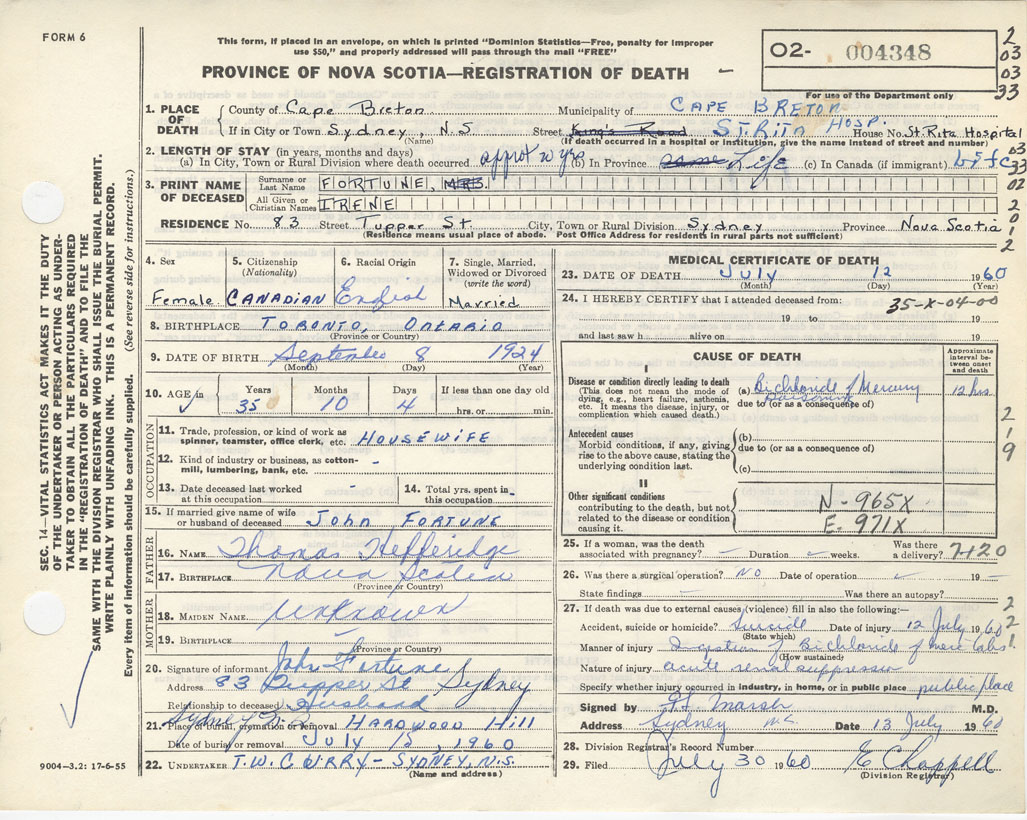 FORM 6
This form, if placed in an envelope, on which is printed "Dominion Statistics—Free, penalty for improper
use $50," and properly addressed will pass through the mail "FREE"
O2- 004348
For use of the Department only
2
03
03
33
PROVINCE OF NOVA SCOTIA—REGISTRATION OF DEATH
1. PLACE OF DEATH
County of Cape Breton Municipality of CAPE BRETON
If in City or Town Sydney, N.S Street King's Road St. Rita Hosp. House No. St. Rita Hospital
(Name) (If death occurred in a hospital or institution, give the name instead of street and number)
2. LENGTH OF STAY (in years, months and days)
(a) In City, Town or Rural Division where death occurred (b) In Province Life (c) In Canada (if immigrant) Life
03
33
3. PRINT NAME OF DECEASED
Surname or Last Name FORTUNE, MRS.
02
All Given or Christian Names IRENE
2
RESIDENCE No. 83 Street Tupper St. City, Town or Rural Division Sydney Province Nova Scotia
(Residence means usual place of abode. Post Office Address for residents in rural parts not sufficient)
0
1
2
4. Sex Female
5. Citizenship (Nationality) CANADIAN
6. Racial Origin English
7. Single, Married, Widowed or Divorced (write the word) Married
8. BIRTHPLACE TORONTO, ONTARIO
(Province or Country)
9. DATE OF BIRTH September 8 1924
(Month) (Day) (Year)
10. AGE in Years 35 Months 10 Days 4 If less than one day old
hrs. or min.
OCCUPATION
11. Trade, profession or kind of work as spinner, teamster, office clerk, etc. HOUSEWIFE
12. Kind of industry or business, as cotton-mill, lumbering, bank, etc. -
13. Date deceased last worked at this occupation -
14. Total yrs. spent in this occupation -
15. If married give name of wife or husband of deceased John FORTUNE
FATHER
16. NAME Thomas Hefferidge
17. BIRTHPLACE Nova Scotia
(Province or Country)
MOTHER
18. MAIDEN NAME Unknown
19. BIRTHPLACE —
(Province or Country)
20. Signature of informant John Fortune
Address 83 Tupper St Sydney
Relationship to deceased Husband
21. Place of burial, cremation or removal Hardwood Hill
Sydney N.S.
Date of burial or removal July 15, 1960
22. UNDERTAKER T.W. CURRY - SYDNEY, N.S.
(Name and address)
MEDICAL CERTIFICATE OF DEATH
23. DATE OF DEATH July 12 1960
(Month) (Day) (Year)
24. I HEREBY CERTIFY that I attended deceased from: 35-X-04-00
19 to 19
and last saw h alive on 19
CAUSE OF DEATH
Approximate interval between onset and death
I
Disease or condition directly leading to death
(This does not mean the mode of dying, e.g., heart failure, asthenia, etc. It means the disease, injury, or complication which caused death.)
(a) Bichloride of Mercury Poisoning 12 hrs.
due to (or as a consequence of)
Antecedent causes
Morbid conditions, if any, giving rise to the above cause, stating the underlying condition last.
(b)
due to (or as a consequence of)
(c)
2
1
9
II
Other significant conditions contributing to the death, but not related to the disease or condition causing it.
N-965X
E-971X
25. If a woman, was the death associated with pregnancy? — Duration weeks. Was there a delivery?
7+20
26. Was there a surgical operation? NO Date of operation 19 —
State findings Was there an autopsy?
27. If death was due to external causes (violence) fill in also the following:—
Accident, suicide or homicide? Suicide Date of injury 12 July 1960
(State which)
Manner of injury Ingestion of Bichloride of merc tabs
(How sustained)
Nature of injury acute renal suppression
2
2
1
Specify whether injury occurred in industry, in home, or in public place public place
Signed by Marsh M.D.
Address Sydney NS Date 13 July 1960
28. Division Registrar's Record Number
29. Filed July 30 1960 E Chappell
(Division Registrar)
9004—3.2: 17-6-55
SEC. 14—VITAL STATISTICS ACT MAKES IT THE DUTY
OF THE UNDERTAKER OR PERSON ACTING AS UNDER-
TAKER TO OBTAIN ALL THE PARTICULARS REQUIRED
IN THE "REGISTRATION OF DEATH" AND TO FILE THE
SAME WITH THE DIVISION REGISTRAR WHO SHALL ISSUE THE BURIAL PERMIT.
WRITE PLAINLY WITH UNFADING INK. THIS IS A PERMANENT RECORD.
Every item of information should be carefully supplied. (See reverse side for instructions.)